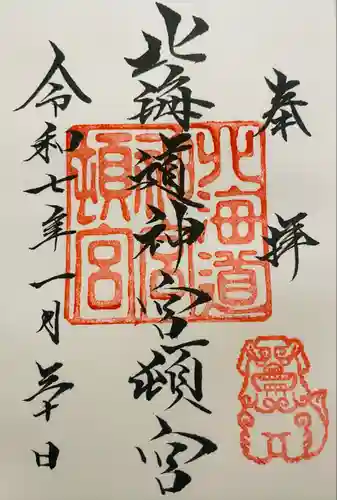 奉拝
北海道神宮頓宮
北海道
神宮
頓宮
令和七年一月三十日